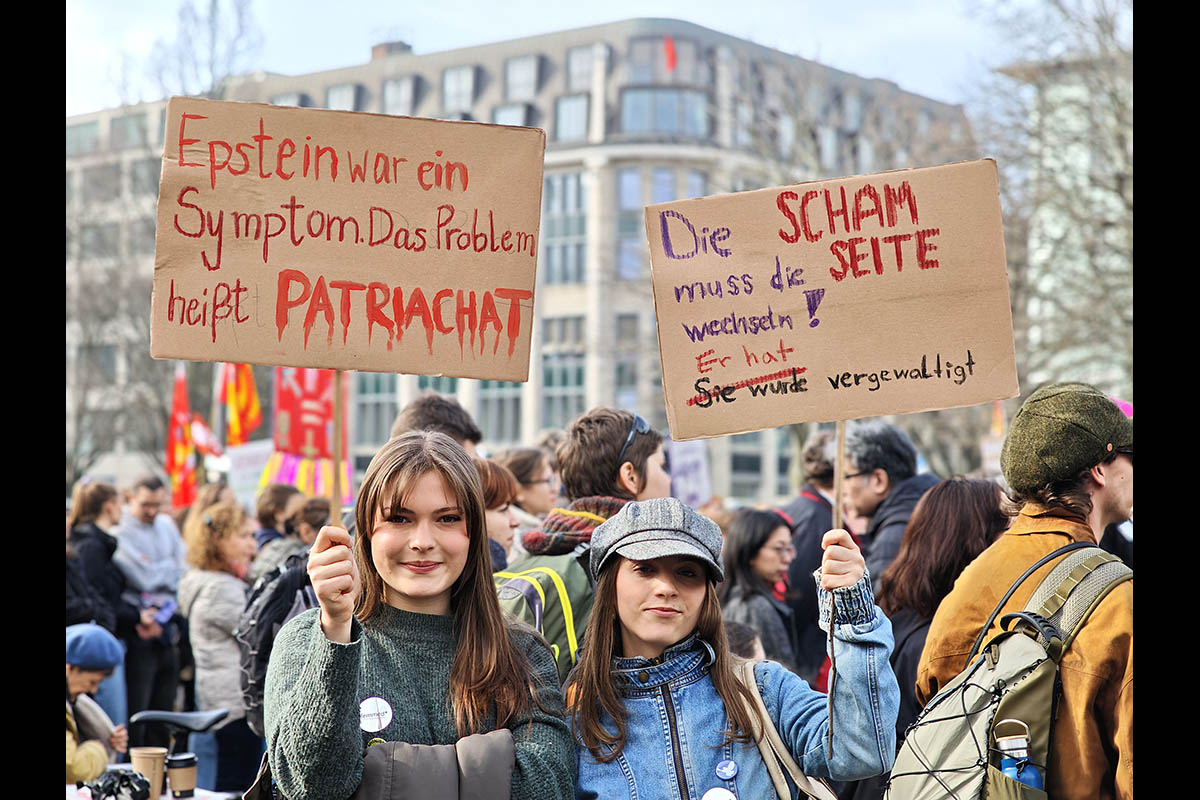 Epstein war ein
Symptom. Das Problem
heißt PATRIACHAT
Die SCHAM
muss die SEITE
wechseln!
Er hat
Sie wurde vergewaltigt